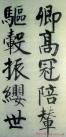 卿高冠陪輦
驅轂振纓世